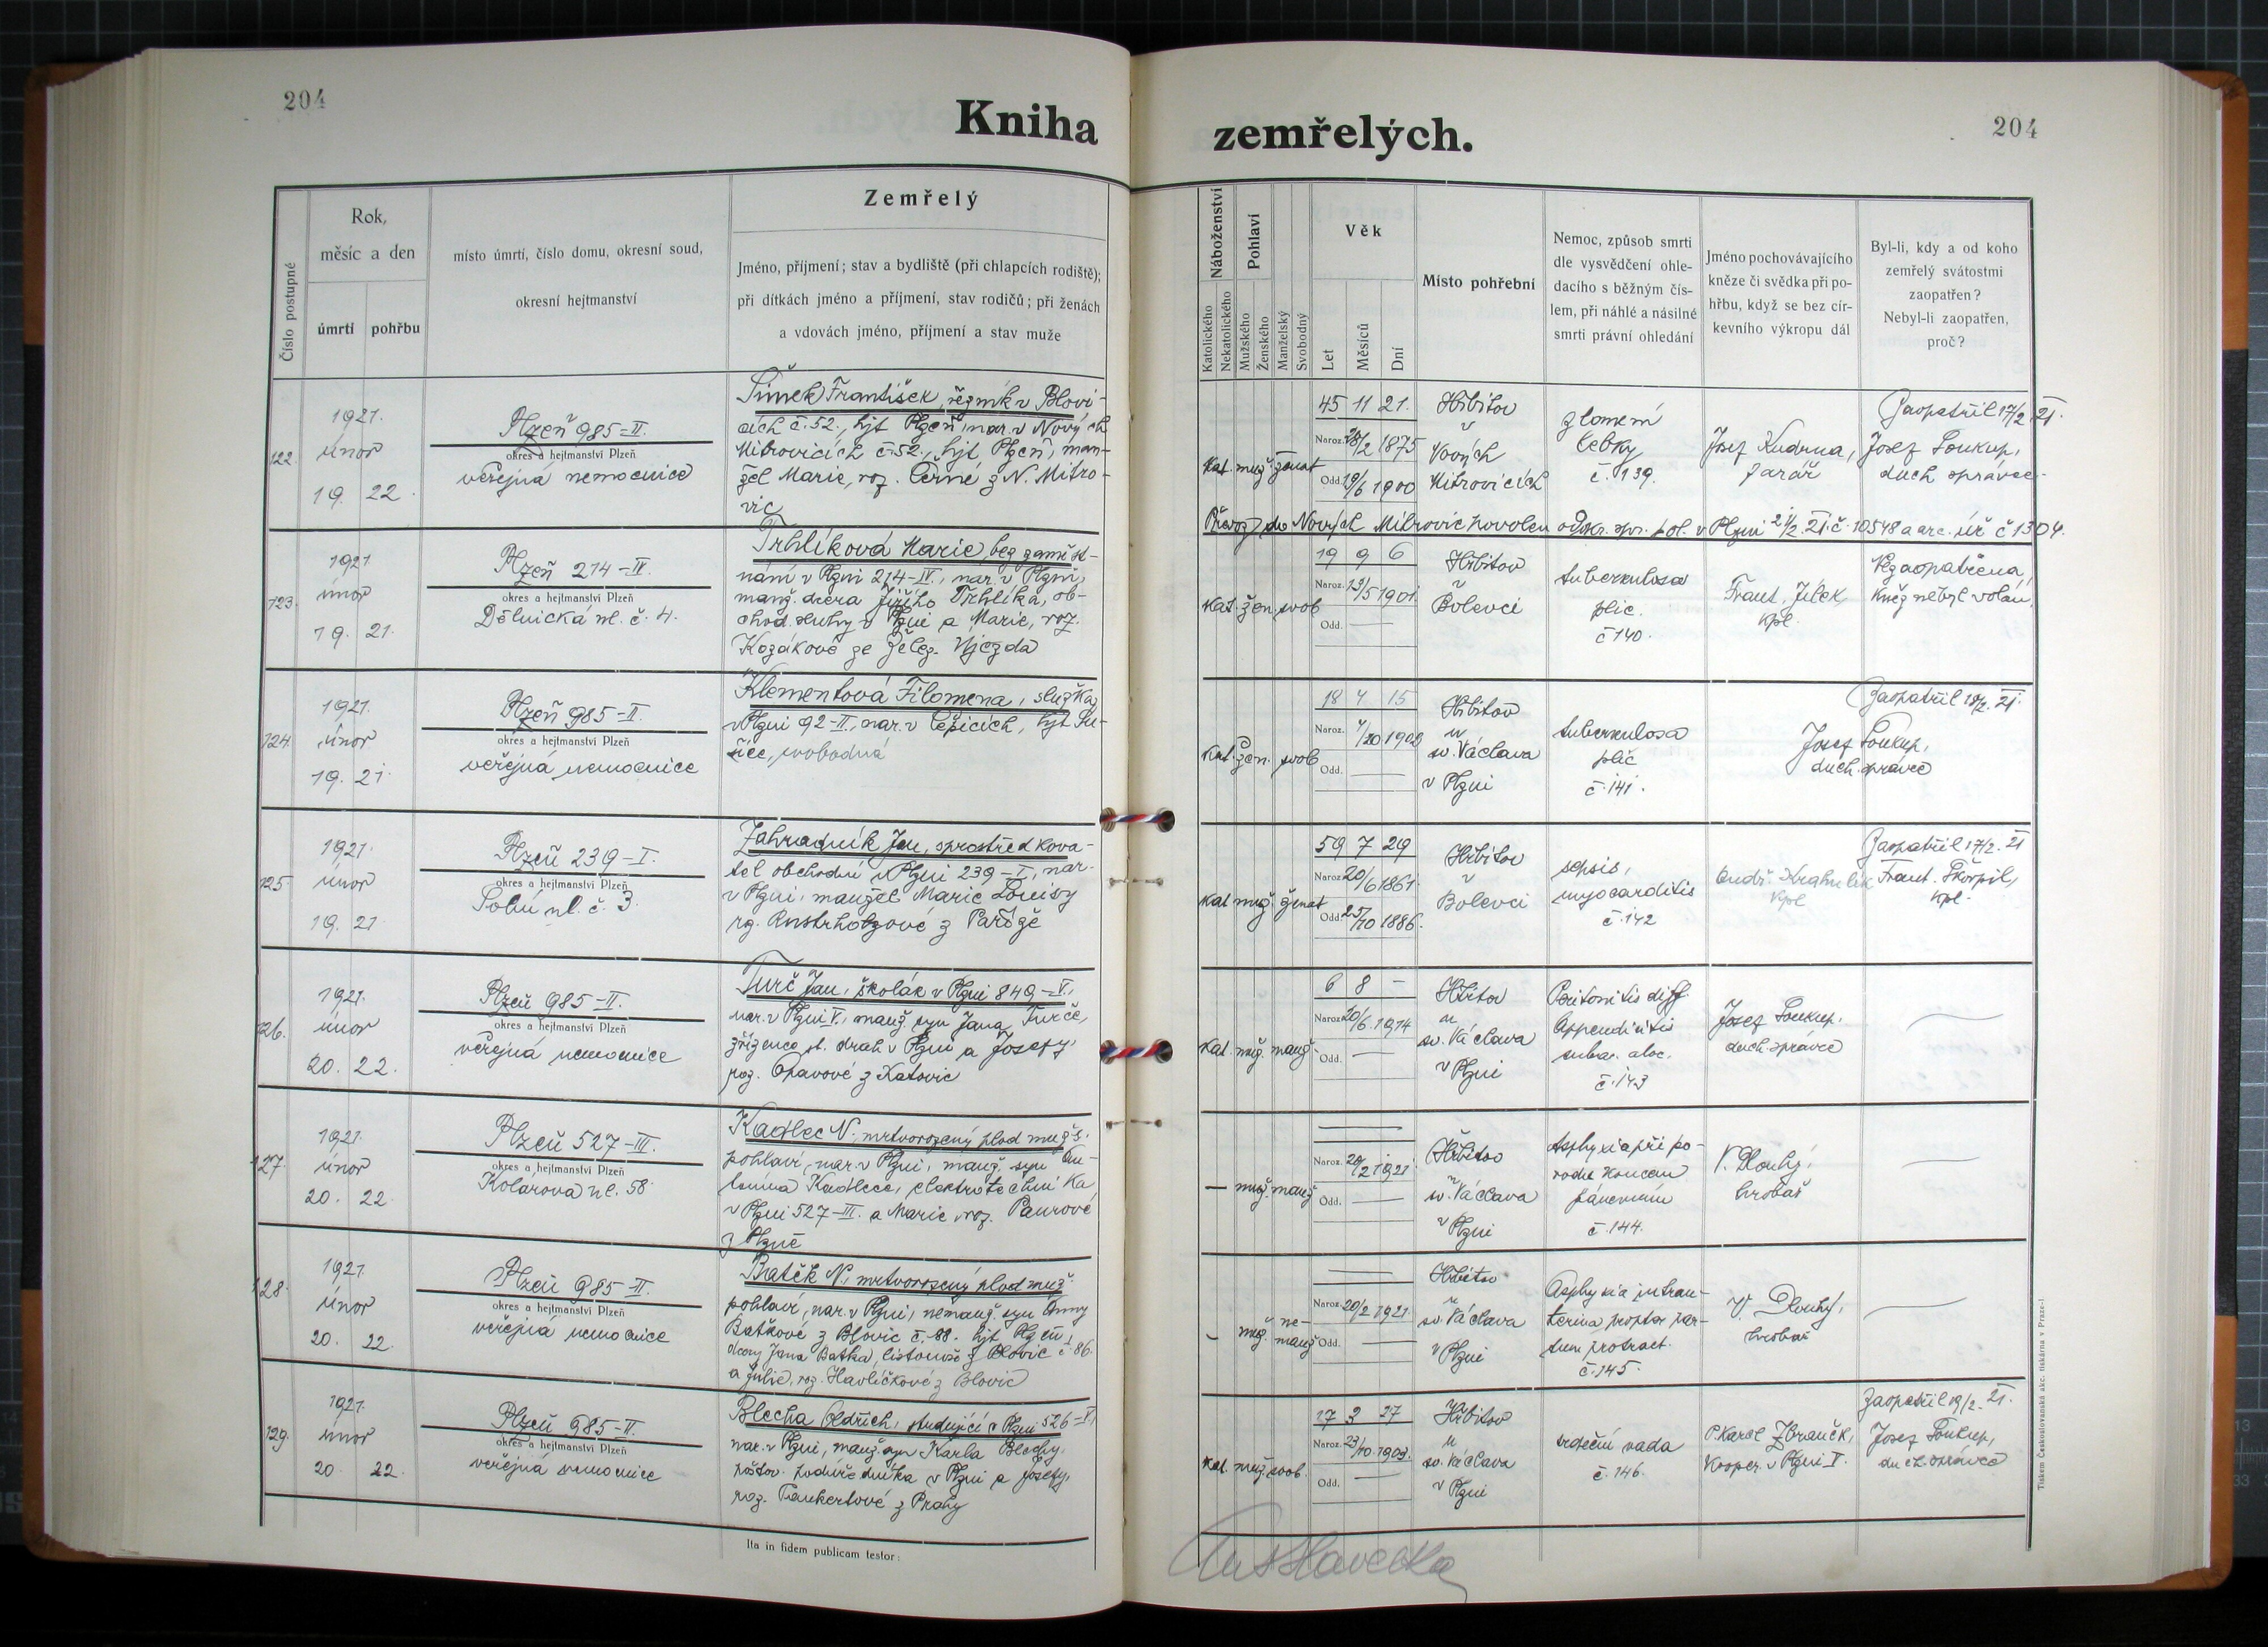 204
Kniha
zemřelých.
204
Číslo postupné
Rok,
měsíc a den
úmrtí
pohřbu
místo úmrtí, číslo domu, okresní soud,
okresní hejtmanství
Zemřelý
Jméno, příjmení; stav a bydliště (při chlapcích rodiště);
při dítkách jméno a příjmení, stav rodičů; při ženách
a vdovách jméno, příjmení a stav muže
Náboženství
Katolického
Nekatolického
Pohlaví
Mužského
Ženského
Manželský
Svobodný
Věk
Let
Měsíců
Dní
Místo pohřební
Nemoc, způsob smrti
dle vysvědčení ohle-
dacího s běžným čís-
lem, při náhlé a násilné
smrti právní ohledání
Jméno pochovávajícího
kněze či svědka při po-
hřbu, když se bez cír-
kevního výkropu dál
Byl-li, kdy a od koho
zemřelý svátostmi
zaopatřen?
Nebyl-li zaopatřen,
proč?
122.
1921.
únor
19. 22.
Plzeň 985-II.
okres a hejtmanství Plzeň
veřejná nemocnice
Šimek František, řezník v Blovi-
cích č. 52., hjt Plzeň, nar. v Nových
Mitrovicích č. 52., hjt Plzeň, man-
žel Marie, roz. Černé z N. Mitro-
vic
Kat. muž. ženat
45 11 21.
Naroz. 28/2 1875
Odd. 19/6 1900
Hřbitov
v
Nových
Mitrovicích
zlomení
lebky
č. 139.
Josef Kudrna,
farář
Zaopatřil 17/2. 21.
Josef Soukup,
duch. správce
Převoz do Nových Mitrovic povolen od okr. spr. pol. v Plzni 21/2. 21. č. 10548 a arc. úř. č 1304.
123.
1921
únor
19. 21.
Plzeň 214-IV.
okres a hejtmanství Plzeň
Dělnická ul. č. 4.
Trhlíková Marie, bez zaměst-
nání v Plzni 214-IV., nar. v Plzni,
manž. dcera Jiřího Trhlíka, ob-
chod. sluhy v Plzni a Marie, roz.
Kozákové ze Želez. Újezda
Kat. žen. svob
19 9 6
Naroz. 13/5 1901.
Odd.
Hřbitov
v
Bolevci
tuberkulosa
plic.
č 140.
Frant. Jílek
kpl.
Nezaopatřena,
kněz nebyl volán.
124.
1921.
únor
19. 21.
Plzeň 985-II.
okres a hejtmanství Plzeň
veřejná nemocnice
Klementová Filomena, služka
v Plzni 92-II., nar. v Čepicích, hjt Su-
šice, svobodná
Kat. žen. svob
18 4 15
Naroz.
Odd.
Hřbitov
u
sv. Václava
v Plzni
tuberkulosa
plic
č. 141.
Josef Soukup,
duch. správce
Zaopatřil 19/2. 21.
125.
1921.
únor
19. 21
Plzeň 239-I.
okres a hejtmanství Plzeň
Solní ul. č. 3.
Zahradník Jan, sprostředkova-
tel obchodní v Plzni 239-I., nar.
v Plzni, manžel Marie Louisy
rz. Rustrholzové z Paříže
Kat. muž. ženat
59 7 29
Naroz. 20/6 1861.
Odd. 25/10 1886.
Hřbitov
v
Bolevci
sepsis,
myocarditis
č. 142
Ondř. Krahulík
kpl
Zaopatřil 17/2. 21
Frant. Škorpil,
kpl.
126.
1921.
únor
20. 22.
Plzeň 985-II.
okres a hejtmanství Plzeň
veřejná nemocnice
Turč Jan, školák v Plzni 849-V.,
nar. v Plzni V., manž. syn Jana Turče,
zřízence st. drah v Plzni a Josefy
roz. Opavové z Katovic
Kat. muž. manž.
6 8 -
Naroz. 20/6. 1914
Odd.
Hřbitov
u
sv. Václava
v Plzni
Peritonitis diff.
Appendicitis
č. 143
Josef Soukup,
duch. správce
127.
1921.
únor
20. 22.
Plzeň 527-III.
okres a hejtmanství Plzeň
Kolárova ul. 58
Kadlec N., mrtvorozený plod mužs.
pohlaví, nar. v Plzni, manž. syn An-
tonína Kadlece, elektrotechnika
v Plzni 527-III. a Marie, roz. Paurové
z Plzně
- muž. manž
Naroz. 20/2 1921
Odd.
Hřbitov
u
sv. Václava
v Plzni
Asphyxia při po-
rodu koncem
pánevním
č. 144.
V. Dlouhý,
hrobař
128.
1921.
únor
20. 22.
Plzeň 985-II.
okres a hejtmanství Plzeň
veřejná nemocnice
Batěk N., mrtvorozený plod muž.
pohlaví, nar. v Plzni, nemanž. syn Anny
Baťkové z Blovic č. 88. hjt Plzeň,
dcery Jana Baťka, listonoše z Blovic č. 86.
a Julie, roz. Havlíčkové z Blovic
- muž. ne-
manž
Naroz. 20/2 1921.
Odd.
Hřbitov
u
sv. Václava
v Plzni
Asphyxia intrau-
terina propter par-
tum protract.
č. 145.
V. Dlouhý,
hrobař
129.
1921.
únor
20. 22.
Plzeň 985-II.
okres a hejtmanství Plzeň
veřejná nemocnice
Blecha Oldřich, studující v Plzni 526-V.,
nar. v Plzni, manž. syn Karla Blechy,
poštov. podúředníka v Plzni a Josefy,
roz. Taukertové z Prahy
Kat. muž. svob.
17 3 27
Naroz. 23/10 1903.
Odd.
Hřbitov
u
sv. Václava
v Plzni
srdeční vada
č. 146.
P. Karel Zbraněk,
kooper. v Plzni V.
Zaopatřil 19/2. 21.
Josef Soukup,
duch. správce
Ita in fidem publicam testor:
Tiskem Českoslovanská akc. tiskárna v Praze-I